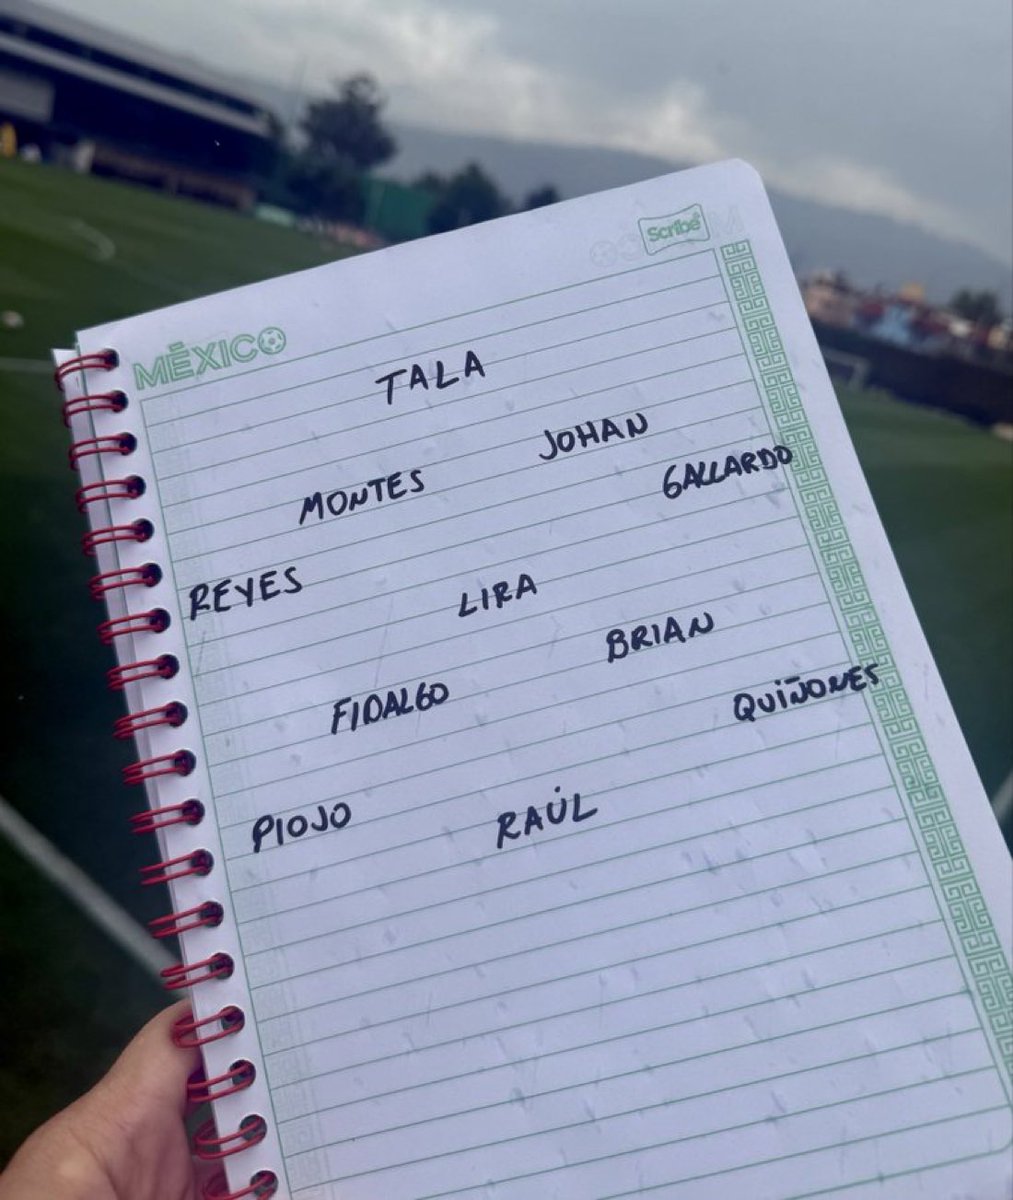 Scribe
MÉXICO
TALA
MONTES JOHAN
REYES GALLARDO
LIRA
FIDALGO BRIAN
PIOJO RAÚL QUIÑONES